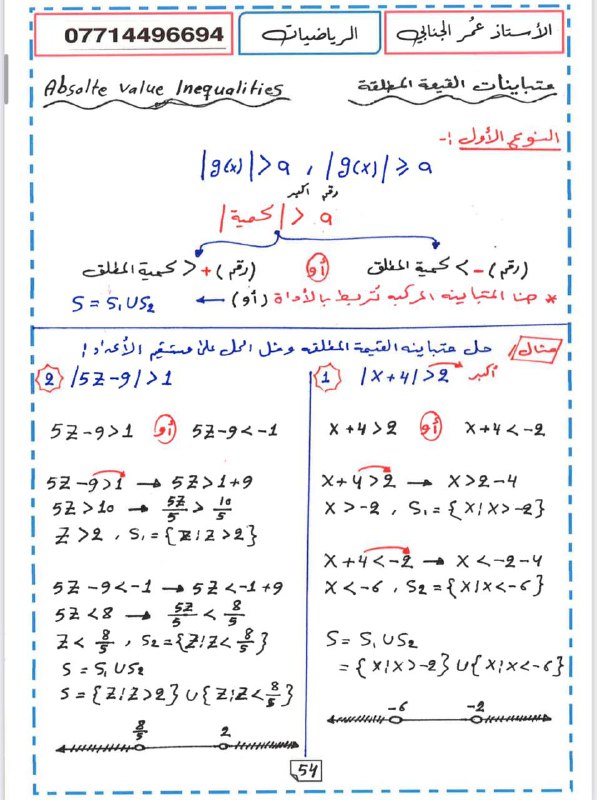 الأستاذ عمُر الجنابي
الرياضيات
07714496694
متباينات القيمة المطلقة
Absolte value Inequalities
النوع الأول :-
|g(x)| > a , |g(x)| ⩾ a
رقم أكبر
|كمية| > a
كمية المطلق < -(رقم) أو كمية المطلق > +(رقم)
* هنا المتباينه المركبه تُربط بالأداة (أو) ← S = S₁ U S₂
مثال/ حل متباينه القيمة المطلقه ومثل الحل على مستقيم الأعداد:
1 |x+4| > 2 أكبر
x+4 > 2 أو x+4 < -2
x+4 > 2 → x > 2-4
x > -2 , S₁ = {x¦x > -2}
x+4 < -2 → x < -2-4
x < -6 , S₂ = {x¦x < -6}
S = S₁ U S₂
= {x¦x > -2} U {x¦x < -6}
-6 -2
2 |5Z-9| > 1
5Z-9 > 1 أو 5Z-9 < -1
5Z-9 > 1 → 5Z > 1+9
5Z > 10 → 5Z/5 > 10/5
Z > 2 , S₁ = {Z¦Z > 2}
5Z-9 < -1 → 5Z < -1+9
5Z < 8 → 5Z/5 < 8/5
Z < 8/5 , S₂ = {Z¦Z < 8/5}
S = S₁ U S₂
S = {Z¦Z > 2} U {Z¦Z < 8/5}
8/5 2
54